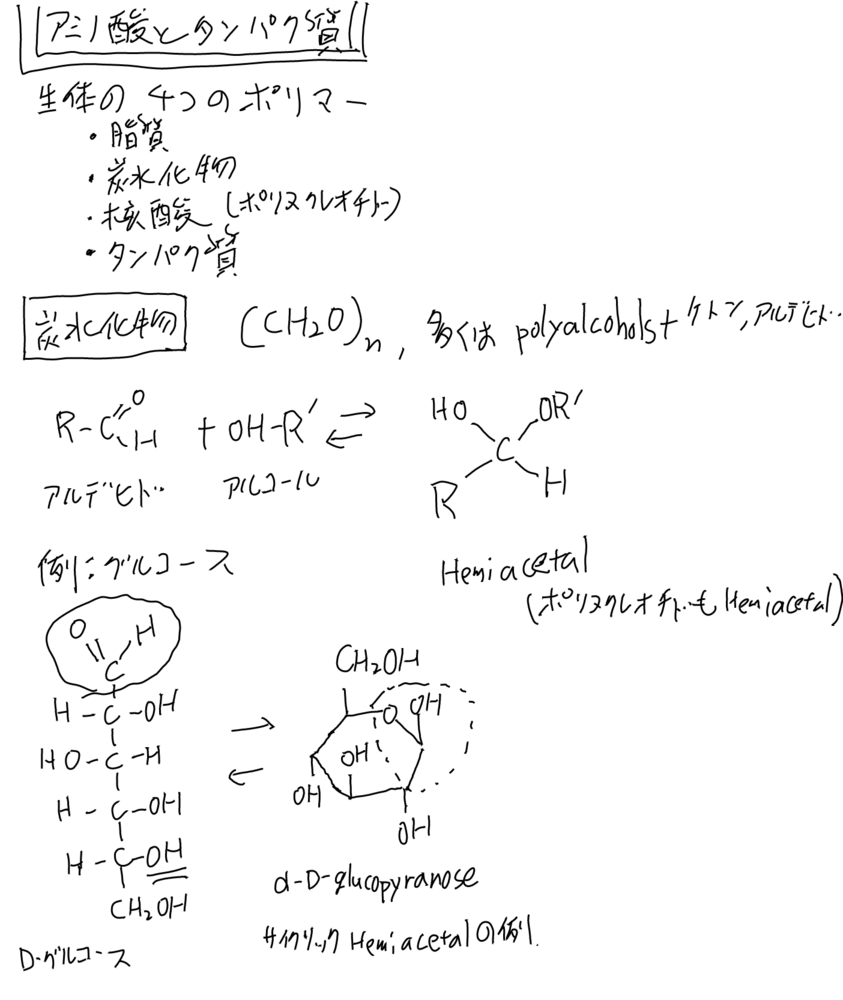 アミノ酸とタンパク質
生体の4つのポリマー
・脂質
・炭水化物
・核酸 (ポリヌクレオチド)
・タンパク質
炭水化物 (CH2O)n, 多くは polyalcohols + ケトン, アルデヒド
R-C O H + OH-R' ⇌ HO OR' C R H
アルデヒド アルコール
Hemiacetal
(ポリヌクレオチドも Hemiacetal)
例: グルコース
O H
C
H-C-OH
HO-C-H
H-C-OH
H-C-OH
CH2OH
D-グルコース
⇌
CH2OH
O OH
OH
OH
OH
α-D-glucopyranose
サイクリック Hemiacetalの例.